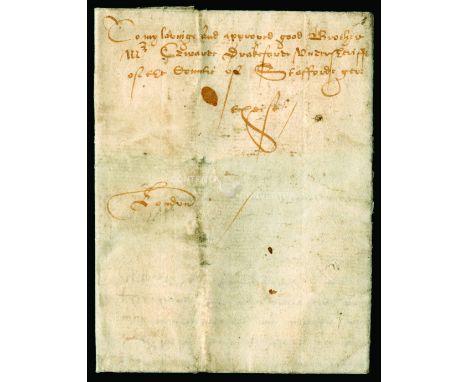 To my lovinge and approved good Brother
Mr Edward Drakeford Undersheriffe
of the Countie of Stafford geve
these
London